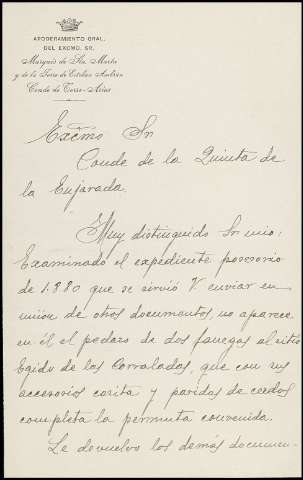 APODERAMIENTO GRAL.
DEL EXCMO. SR.
Marqués de Sta. Marta
y de la Torre de Esteban Hambrán
Conde de Torre-Arias
Excmo Sr
Conde de la Quinta de
la Enjarada.
Muy distinguido Sr mio:
Examinado el expediente posesorio
de 1.880 que se sirvió V enviar en
union de otros documentos, no aparece
en él el pedazo de dos fanegas al sitio
Egido de los Corralados, que con sus
accesorios casita y paridas de cerdos
completa la permuta convenida.
Le devuelvo los demás documen-